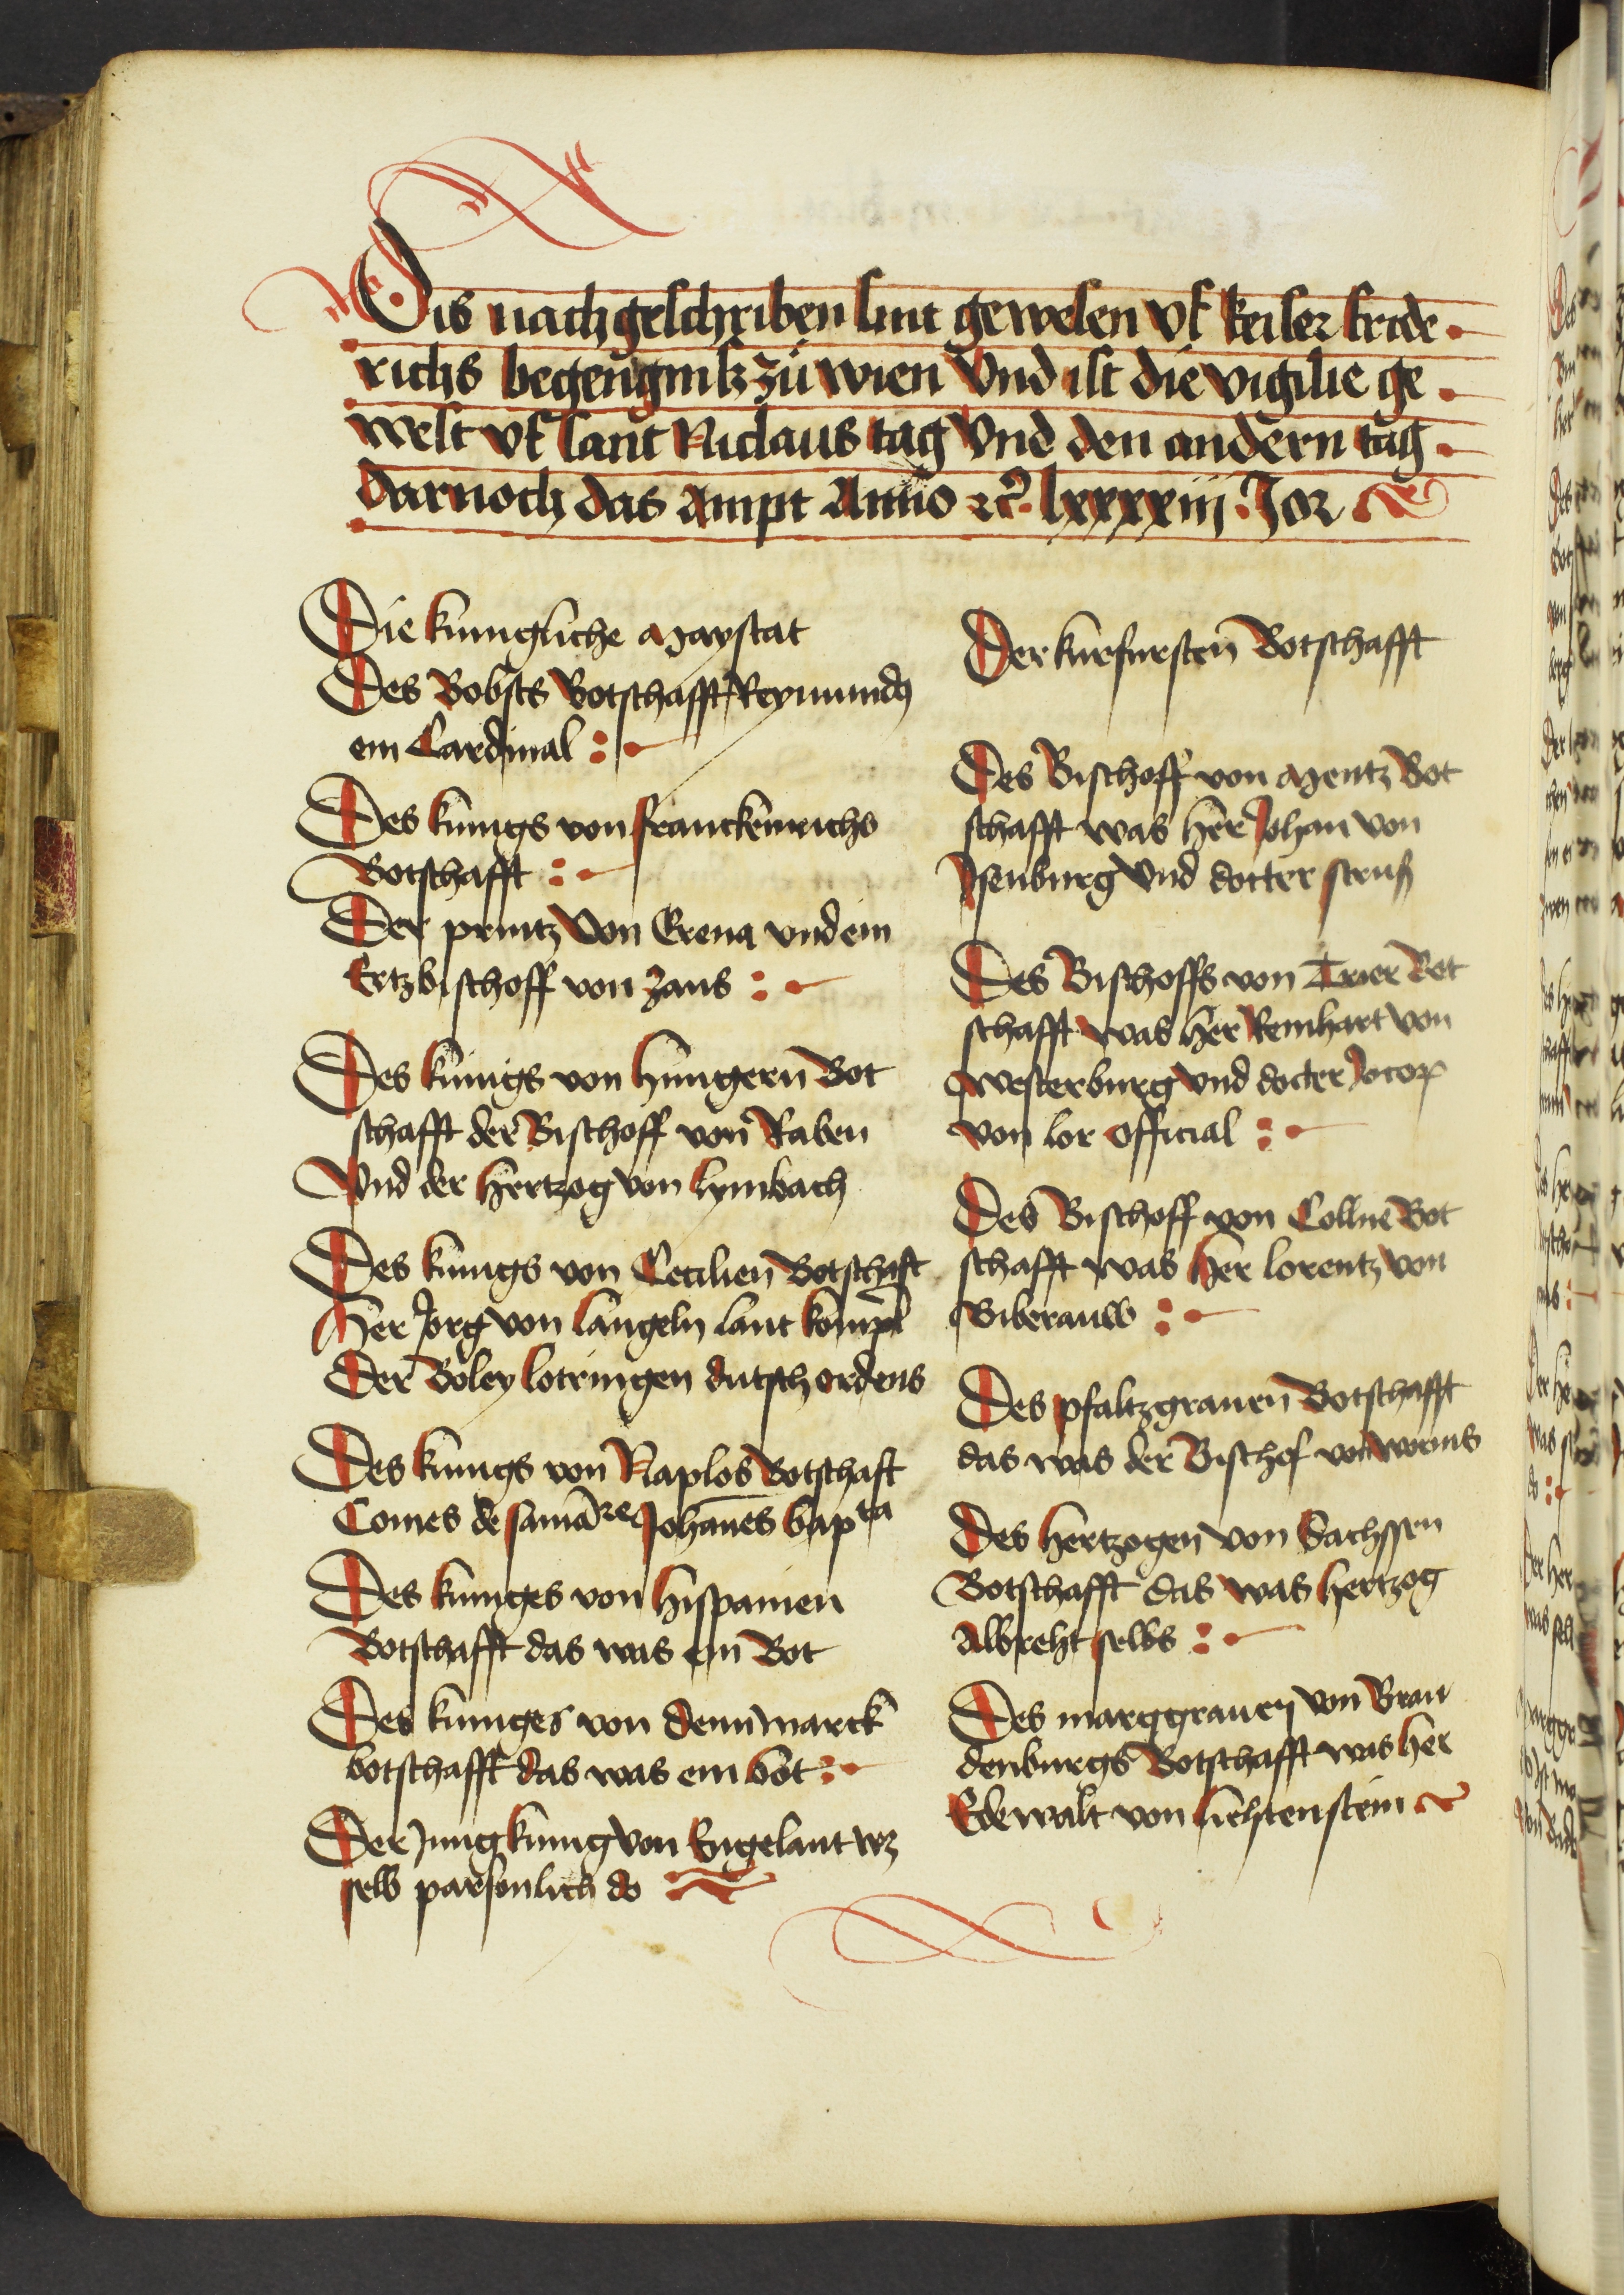 Dis nachgeschriben sint gewesen vf keiser fride
richs begengnisz zů wien Vnd ist die vigilie ge
west vf sant Niclaus tag Vnd den andern tag
darnoch das Ampt Anno ꝛc̃. lxxxxiij. Jor
Die kunigliche Maystat
Des Bobsts Botschafft Reymundus
ein Cardinal
Des kunigs von franckenrichs
Botschafft
Der printz Von Erena vnd ein
Ertzbischoff von Zans
Des kunigs von hungern Bot
schafft der Bischoff von Raben
Vnd der hertzog von lymbach
Des kunigs von Cecilien Botschaft
Her Jorg von langeln lant
Der Boley lotringen dutsch ordens
Des kunigs von Naplos Botschaft
Comes de Johanes bapta
Des kuniges von hispanien
Botschafft das was ein Bot
Des kuniges von dennmarck
botschafft das was ein bot
Der Jung kunig von Engelant wz
selb parsonlich do
Der kurfursten Botschafft
Des Bischoff von Mentz Bot
schafft was her Johan von
Jsenburg Vnd docter struß
Des Bischoffs von Trier Bot
schafft was her Reinhart von
westerburg Vnd docter
von lor official
Des Bischoff von Collne Bot
schafft was her lorentz von
Biberauw
Des pfaltzgrauen Botschafft
das was der Bischof von worms
Des hertzogen von Sachssen
Botschafft das was hertzog
Albreht selbs
Des marggrauen von Bran
denburgs Botschafft was her
Edewalt von liehtenstein